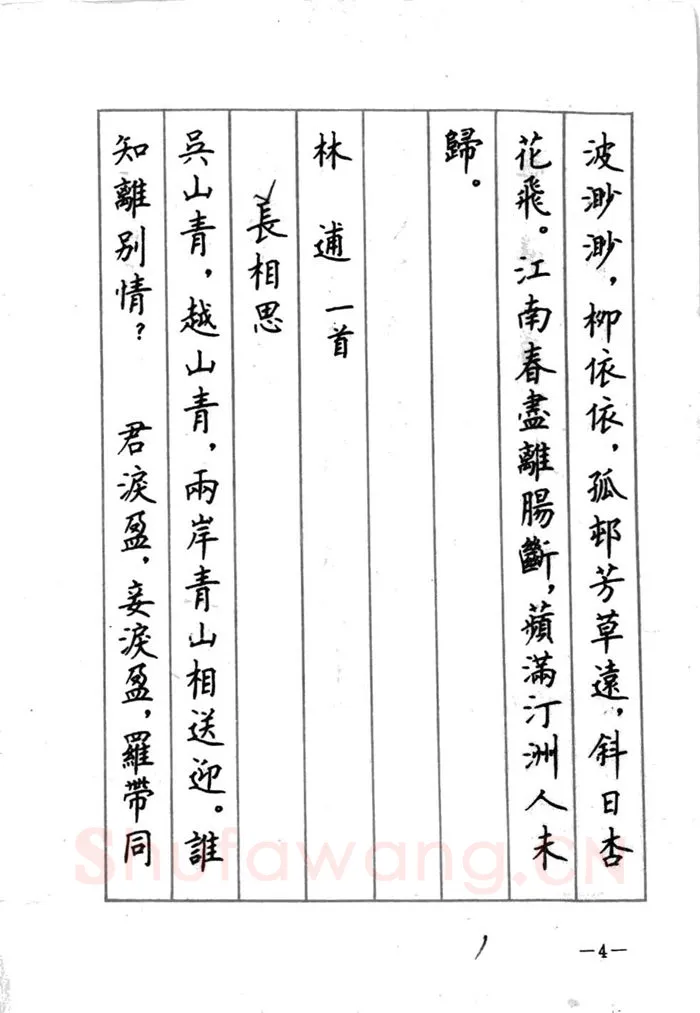 波渺渺，栁依依，孤邨芳草遠，斜日杏
花飛。江南春盡離腸斷，蘋滿汀洲人未
歸。
林逋一首
長相思
吳山青，越山青，兩岸青山相送迎。誰
知離別情？君淚盈，妾淚盈，羅帶同
Shufawang.CN
—4—